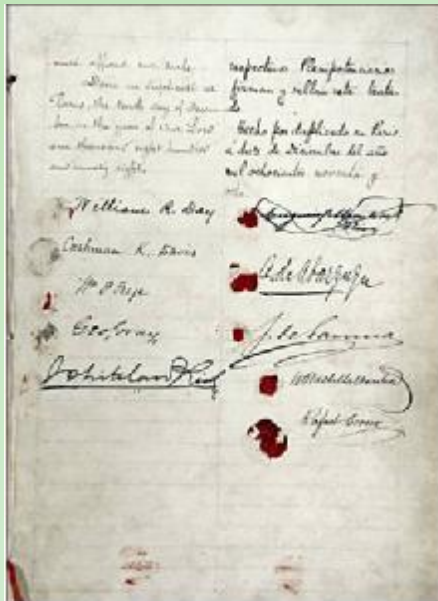 Done in duplicate at
Paris, the tenth day of Decem-
ber, in the year of Our Lord
one thousand eight hundred
and ninety eight.
William R. Day
Cushman K. Davis
Wm P. Frye
Geo. Gray
Whitelaw Reid
respectivos Plenipotenciarios
firman y sellan este Trata-
do
Hecho por duplicado en Paris
á diez de Diciembre del año
mil ochocientos noventa y
ocho.
B. de Abarzuza
J. de Garnica
Rafael Cerero